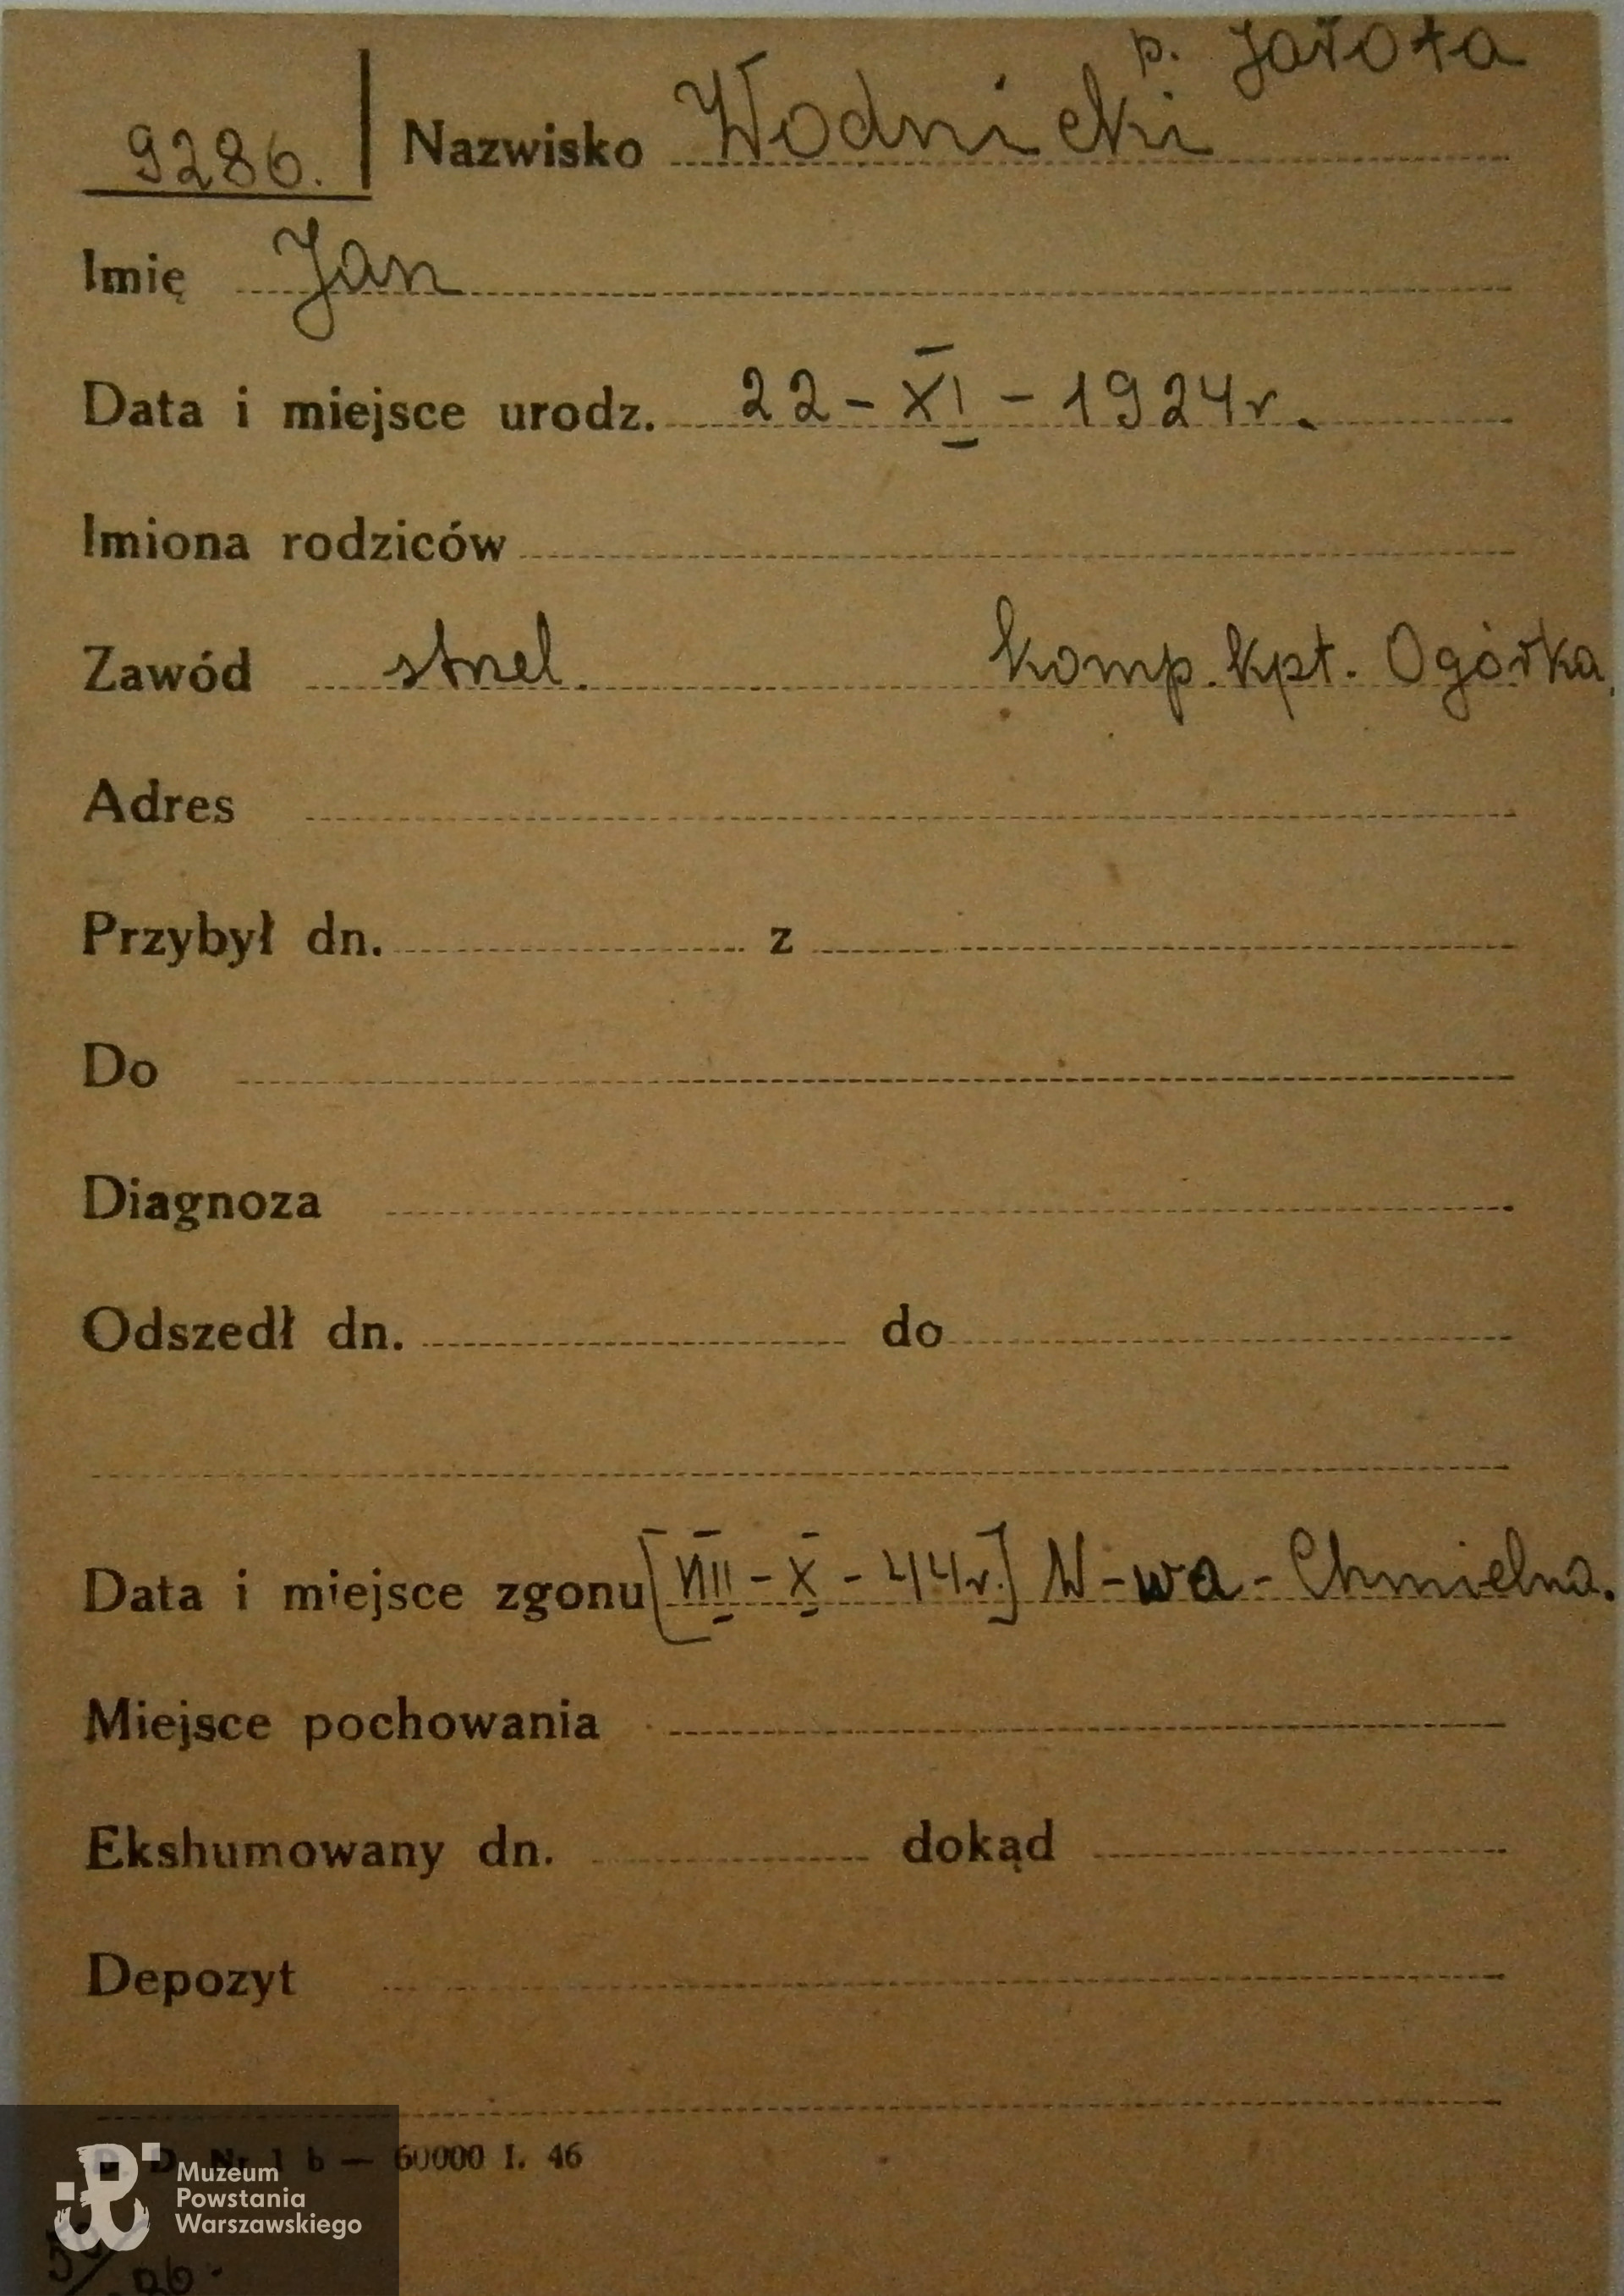 p. Jarota
9286. Nazwisko Wodnicki
Imię Jan
Data i miejsce urodz. 22-XI-1924r.
Imiona rodziców
Zawód strzel. komp. kpt. Ogórka.
Adres
Przybył dn. z
Do
Diagnoza
Odszedł dn. do
Data i miejsce zgonu [VIII-X-44r.] W-wa-Chmielna.
Miejsce pochowania
Ekshumowany dn. dokąd
Depozyt
D. Nr 1 b — 60000 I. 46
Muzeum
Powstania
Warszawskiego